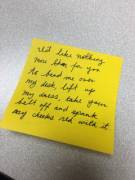 I'd like nothing
more than for you
to bend me over
my desk, lift up
my dress, take your
belt off and spank
my cheeks red with it